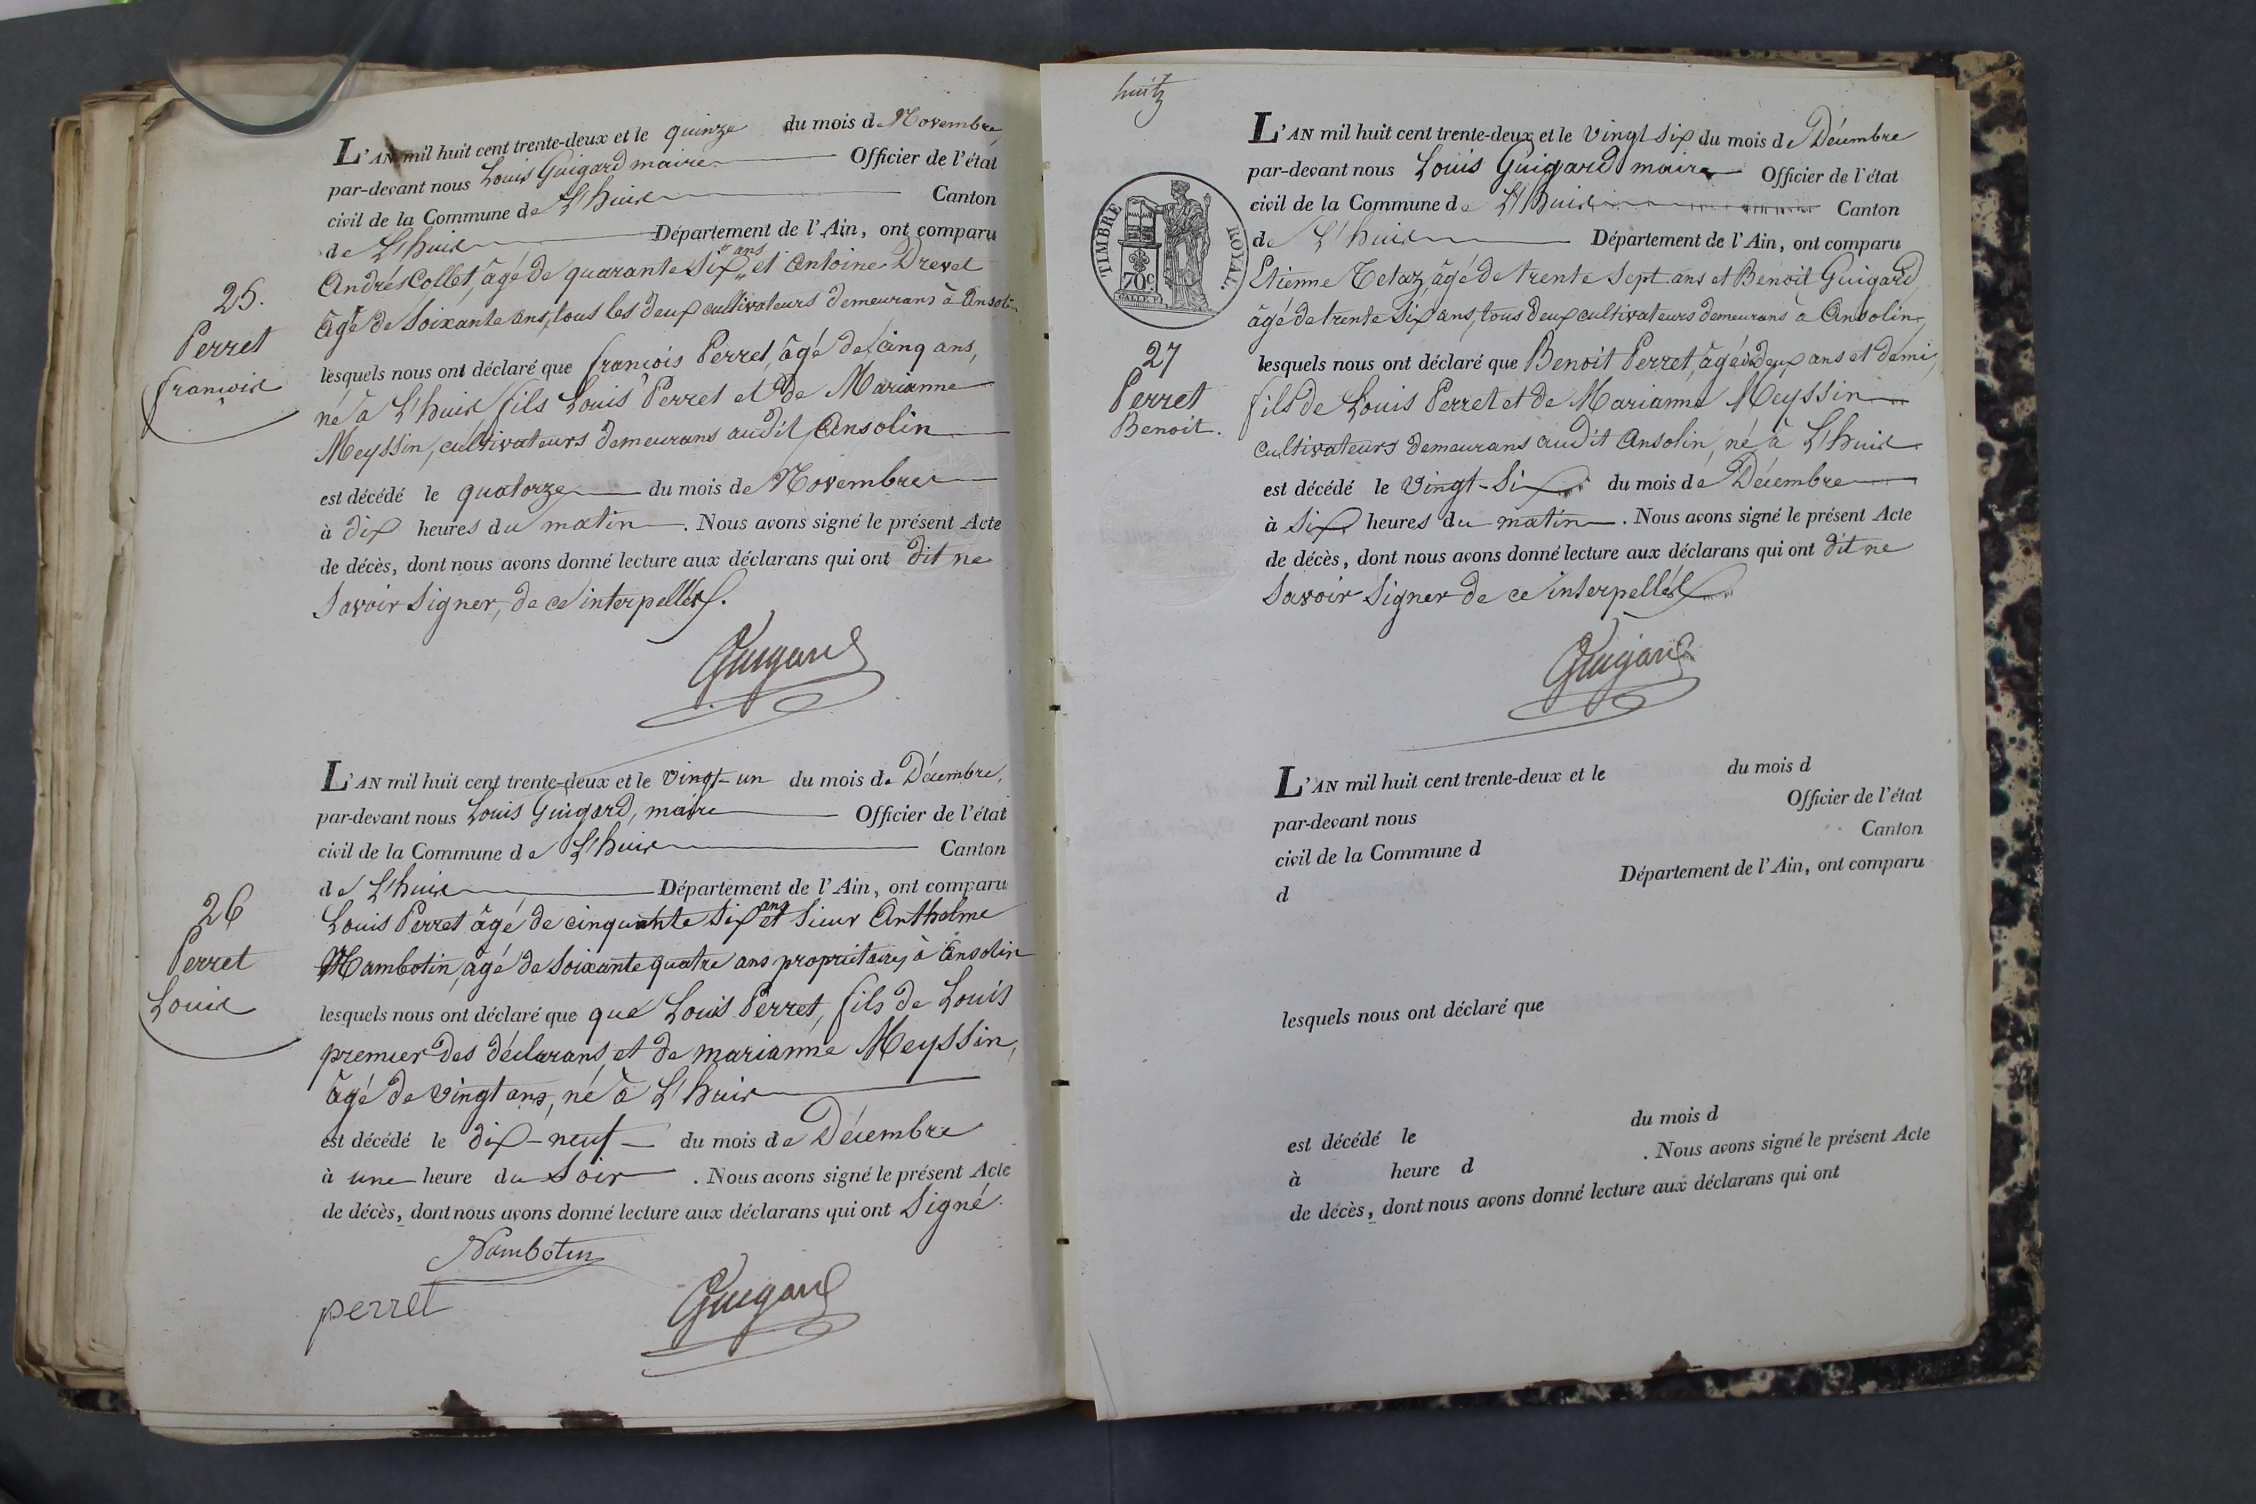 L'AN mil huit cent trente-deux et le quinze du mois de Novembre,
par-devant nous Louis Guigard maire Officier de l'état
civil de la Commune de L'huis Canton
de L'huis Département de l'Ain, ont comparu
André Collet, âgé de quarante six ans et Antoine Drevet
âgé de soixante ans, tous les deux cultivateurs demeurans à Ansolin
25.
Perret
françois
lesquels nous ont déclaré que françois Perret, âgé de cinq ans,
né à L'huis fils Louis Perret et de Marianne
Meyssin, cultivateurs demeurans audit Ansolin
est décédé le quatorze du mois de Novembre
à dix heures du matin. Nous avons signé le présent Acte
de décès, dont nous avons donné lecture aux déclarans qui ont dit ne
savoir signer, de ce interpellés.
Guigard
L'AN mil huit cent trente-deux et le vingt-un du mois de Décembre,
par-devant nous Louis Guigard, maire Officier de l'état
civil de la Commune de L'huis Canton
de L'huis Département de l'Ain, ont comparu
Louis Perret âgé de cinquante six ans et sieur Anthelme
Mambotin, âgé de soixante quatre ans propriétaires à Ansolin
26
Perret
Louis
lesquels nous ont déclaré que que Louis Perret, fils de Louis
premier des déclarans, et de marianne Meyssin,
âgé de vingt ans, né à L'huis
est décédé le dix-neuf du mois de Décembre
à une heure du soir. Nous avons signé le présent Acte
de décès, dont nous avons donné lecture aux déclarans qui ont signé.
Nambotin
perret
Guigard
huit
L'AN mil huit cent trente-deux et le vingt six du mois de Décembre
par-devant nous Louis Guigard maire Officier de l'état
civil de la Commune de L'huis Canton
de L'huis Département de l'Ain, ont comparu
TIMBRE ROYAL.
70c.
Etienne Tetaz, âgé de trente sept ans et Benoit Guigard
âgé de trente six ans, tous deux cultivateurs demeurans à Ansolin,
27
Perret
Benoit.
lesquels nous ont déclaré que Benoit Perret, âgé de deux ans et demi,
fils de Louis Perret et de Marianne Meyssin
cultivateurs demeurans audit Ansolin, né à L'huis
est décédé le vingt-six du mois de Décembre
à six heures du matin. Nous avons signé le présent Acte
de décès, dont nous avons donné lecture aux déclarans qui ont dit ne
savoir signer de ce interpellés
Guigard
L'AN mil huit cent trente-deux et le du mois d
par-devant nous Officier de l'état
civil de la Commune d Canton
d Département de l'Ain, ont comparu
lesquels nous ont déclaré que
est décédé le du mois d
à heure d . Nous avons signé le présent Acte
de décès, dont nous avons donné lecture aux déclarans qui ont